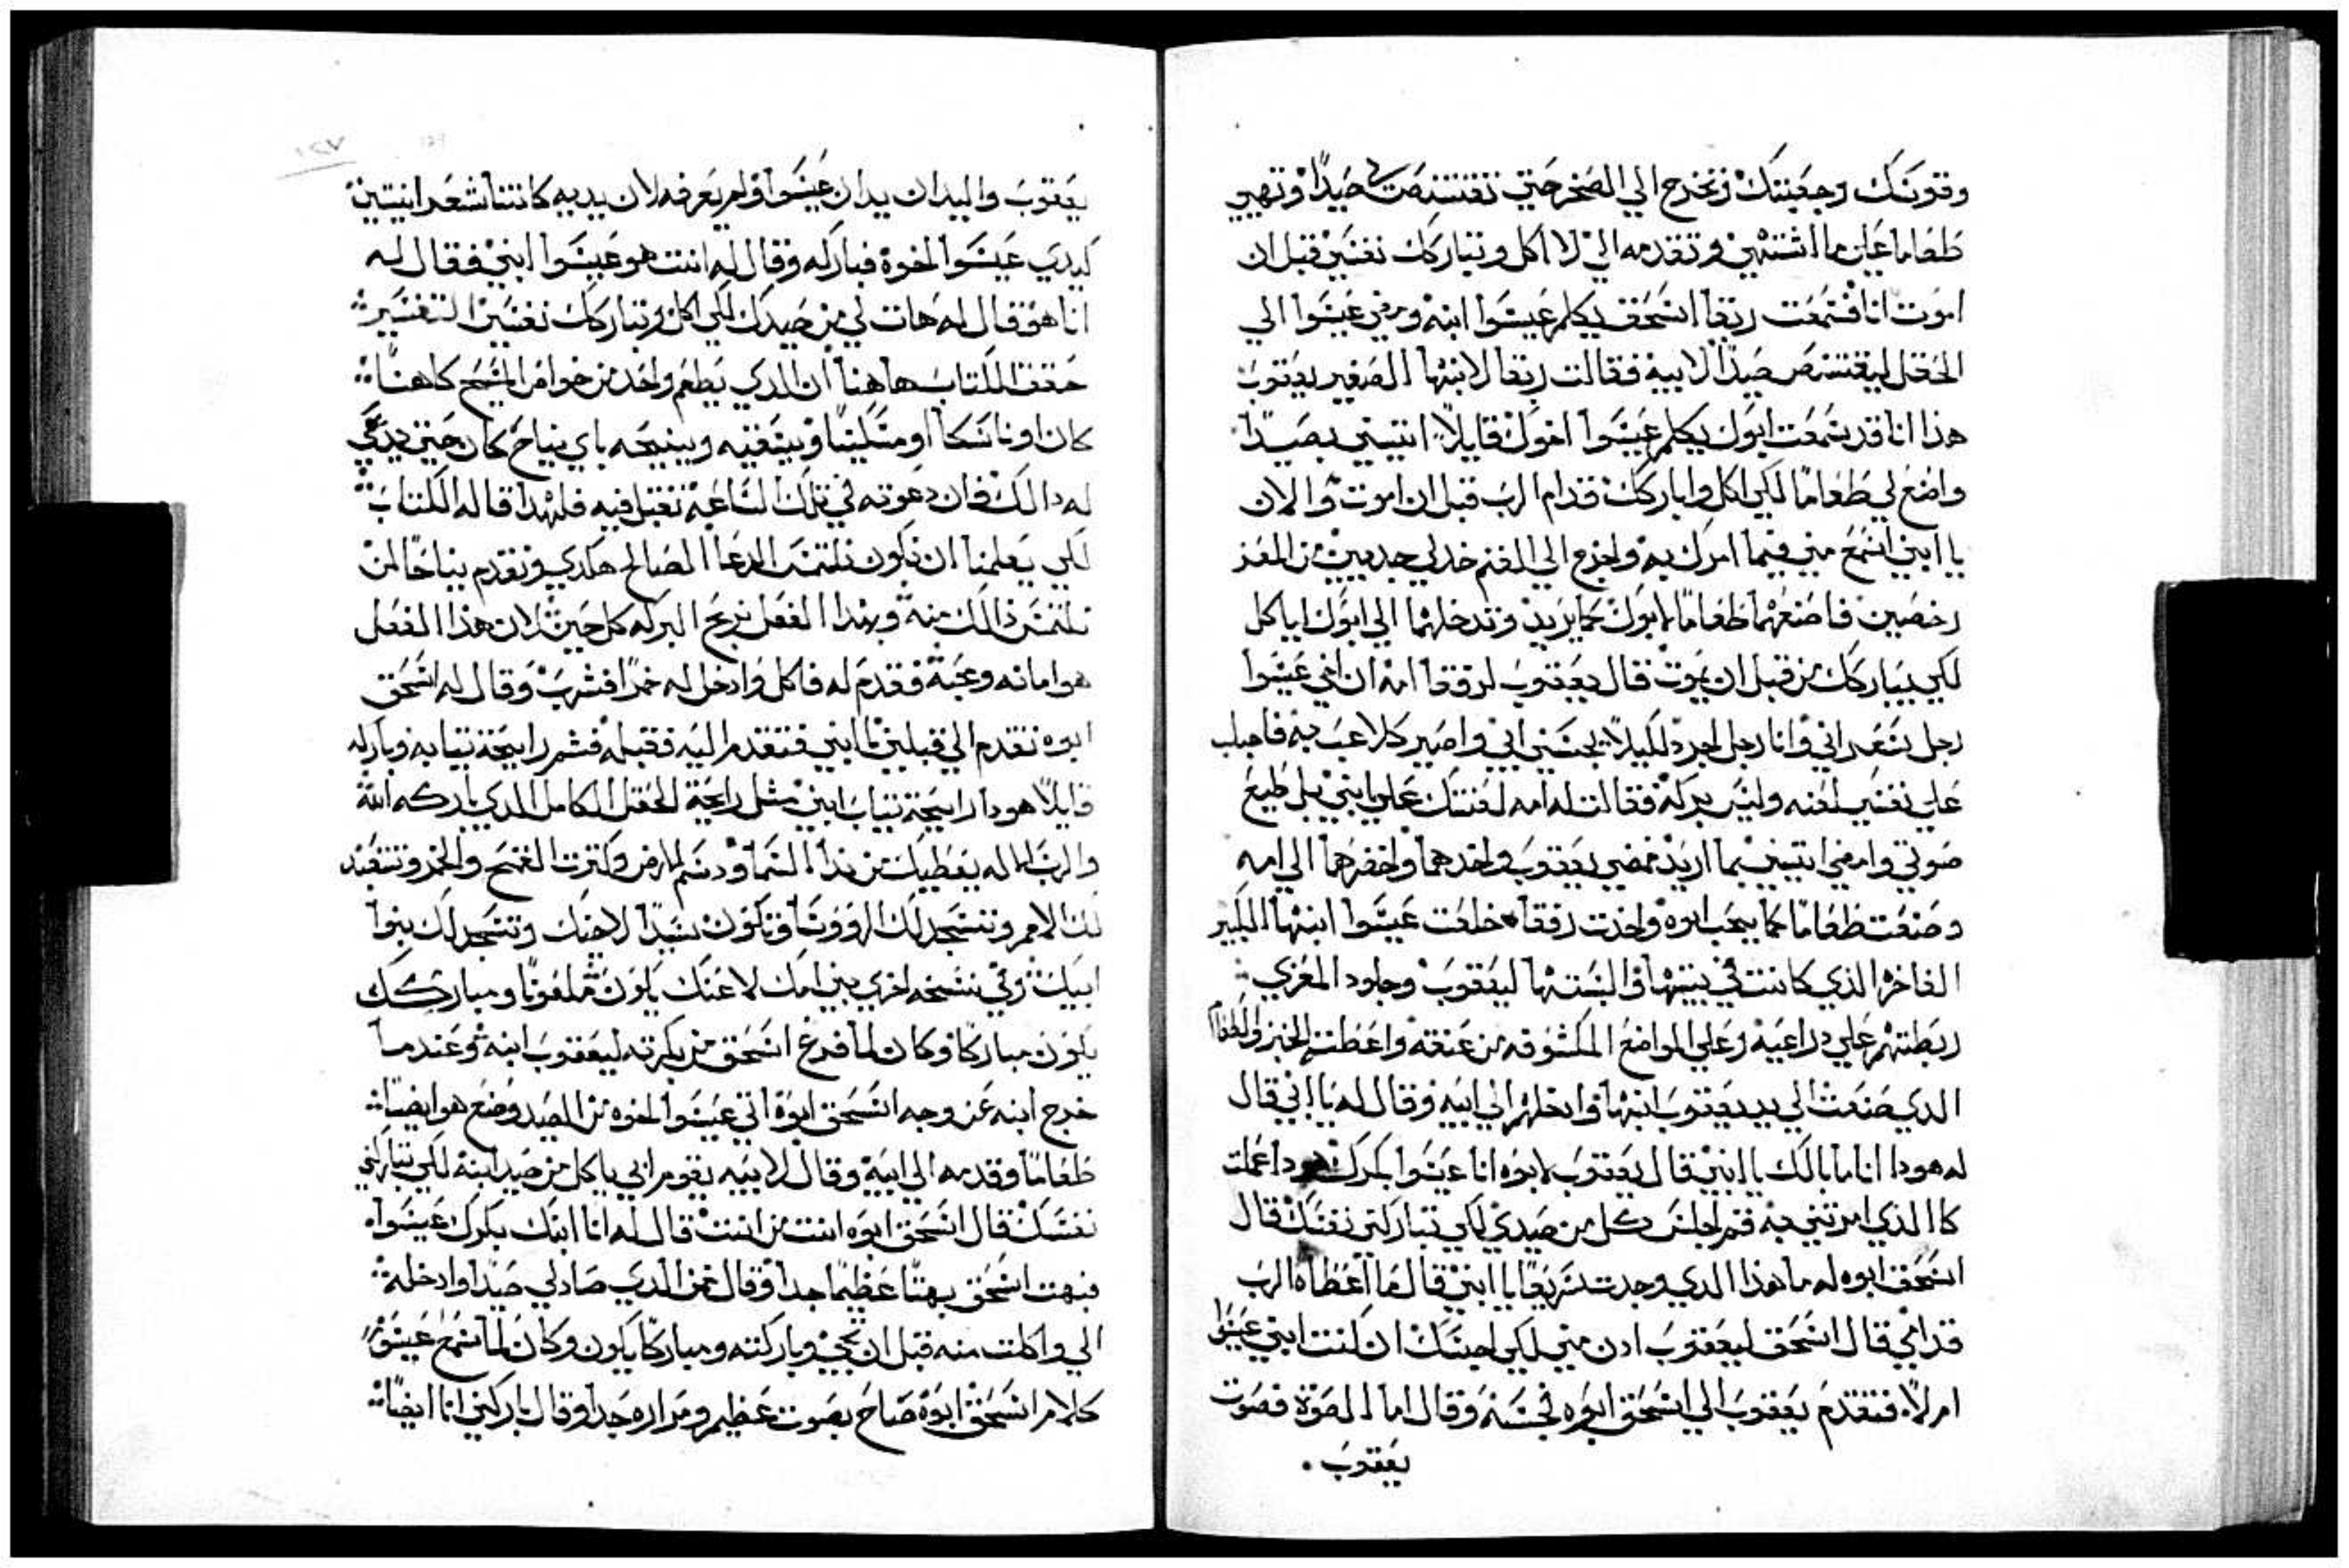 وقوتك وجعبتك وتخرج الي الصحرا حتي تقتنص لي صيدًا وتهيي
طعاما علي ما اشتهي وتقدمه الي لا اكل وتباركك نفسي قبل ان
اموت انا فسمعت ربقا اسحق يكلم عيسوا ابنه ومضي عيسوا الي
الحقل ليقتنص صيدًا لابيه فقالت ربقا لابنها الصغير يعقوب
هذا انا قد سمعت ابوك يكلم عيسوا اخوك قايلاً ايتيني بصيدًا
واصنع لي طعامًا لكي اكل واباركك قدام الرب قبل ان اموت والان
يا ابني اسمع مني فيما امرك به واخرج الي الغنم خد لي جديين من المعز
رخصين فاصنعهما طعامًا لابوك كما يريد وتدخلهما الي ابوك لياكل
لكي يباركك من قبل ان يموت قال يعقوب لرفقا امه ان اخي عيسوا
رجل شعراني وانا رجل اجرد لكيلا يجسني ابي واصير كلاعب به فاجلب
علي نفسي لعنه وليس بركه فقالت له امه لعنتك علي ابني بل اطيع
صوتي وامضي ايتيني بما اريد فمضي يعقوب واخدهما واحضرهما الي امه
وصنعت طعامًا كما يحب ابوه واخدت رفقا خلعت عيسوا ابنها الكبير
الفاخر الذي كانت في بيتها والبستها ليعقوب وجلود المعزي
ربطتهم علي دراعيه وعلي المواضع المكشوفه من عنقه واعطت الخبز والطعام
الدي صنعت الي يد يعقوب ابنها وادخلهم الي ابيه وقال له يا ابي قال
له هودا انا ما بالك يا ابني قال يعقوب لابوه انا عيسوا بكرك هودا عملت
كا الذي امرتني به قم اجلس كل من صيدي لكي تباركني نفسك قال
اسحق ابوه له ما هذا الدي وجدت سريعًا يا ابني قال ما اعطاه الرب
قدامي قال اسحق ليعقوب ادن مني لكي اجسك ان كنت ابني عيسوا
ام لا فتقدم يعقوب الي اسحق ابوه فجسه وقال اما الصوة فصوت
يعقوب
يعقوب واليدان يدان عيسوا ولم يعرفه لان يديه كانتا شعرانيتين
كيدي عيسوا اخوه فباركه وقال له انت هو عيسوا ابني فقال له
انا هو قال له هات لي من صيدك لكي اكل وتباركك نفسي التفسير
حقق الكتاب هاهنا ان الدي يطعم واحد من خواص المسيح كاهنًا
كان او ناسكا او مسكينًا ويتفقده وينيحه باي نياح كان حتي يدعي
له دالك فان دعوته في تلك الساعه تقبل فيه فلهدا قاله الكتاب
لكي يعلمنا ان نكون نلتمس الدعا الصالح هكدي ونقدم نياحًا لمن
نلتمس ذالك منه وبهدا الفعل نربح البركه كل حين لان هذا الفعل
هو امانه ومحبه وقدم له فاكل وادخل له خمرًا فشرب وقال له اسحق
ابوه تقدم الي قبلني يا ابني فتقدم اليه فقبله فشم رايحة تيابه وباركه
قايلاً هودا رايحة تياب ابني مثل رايحة الحقل الكامل الدي باركه الله
والرب الاله يعطيك من ندا السما ودسم الارض وكترت القمح والخمر وتتعبد
لك الامم وتسجد لك الرووسا وتكون سيدًا لاخيك وتسجد لك بنوا
ابيك وفي نسخه اخري بني امك لاعنك يكون ملعونًا ومباركك
يكون مباركا وكان لما فرغ اسحق من بركته ليعقوب ابنه وعندما
خرج ابنه عن وجه اسحق ابوه اتي عيسوا اخوه من الصيد وصنع هو ايضًا
طعامًا وقدمه الي ابيه وقال لابيه يقوم ابي ياكل من صيد ابنه لكي تباركني
نفسك قال اسحق ابوه انت من انت قال له انا ابنك بكرك عيسوا
فبهت اسحق بهتًا عظيمًا جدًا وقال فمن الدي صاد لي صيدًا وادخله
الي واكلت منه قبل ان تجي وباركته ومباركًا يكون وكان لما سمع عيسو
كلام اسحق ابوه صاح بصوت عظيم ومراره جدًا وقال باركني انا ايضًا